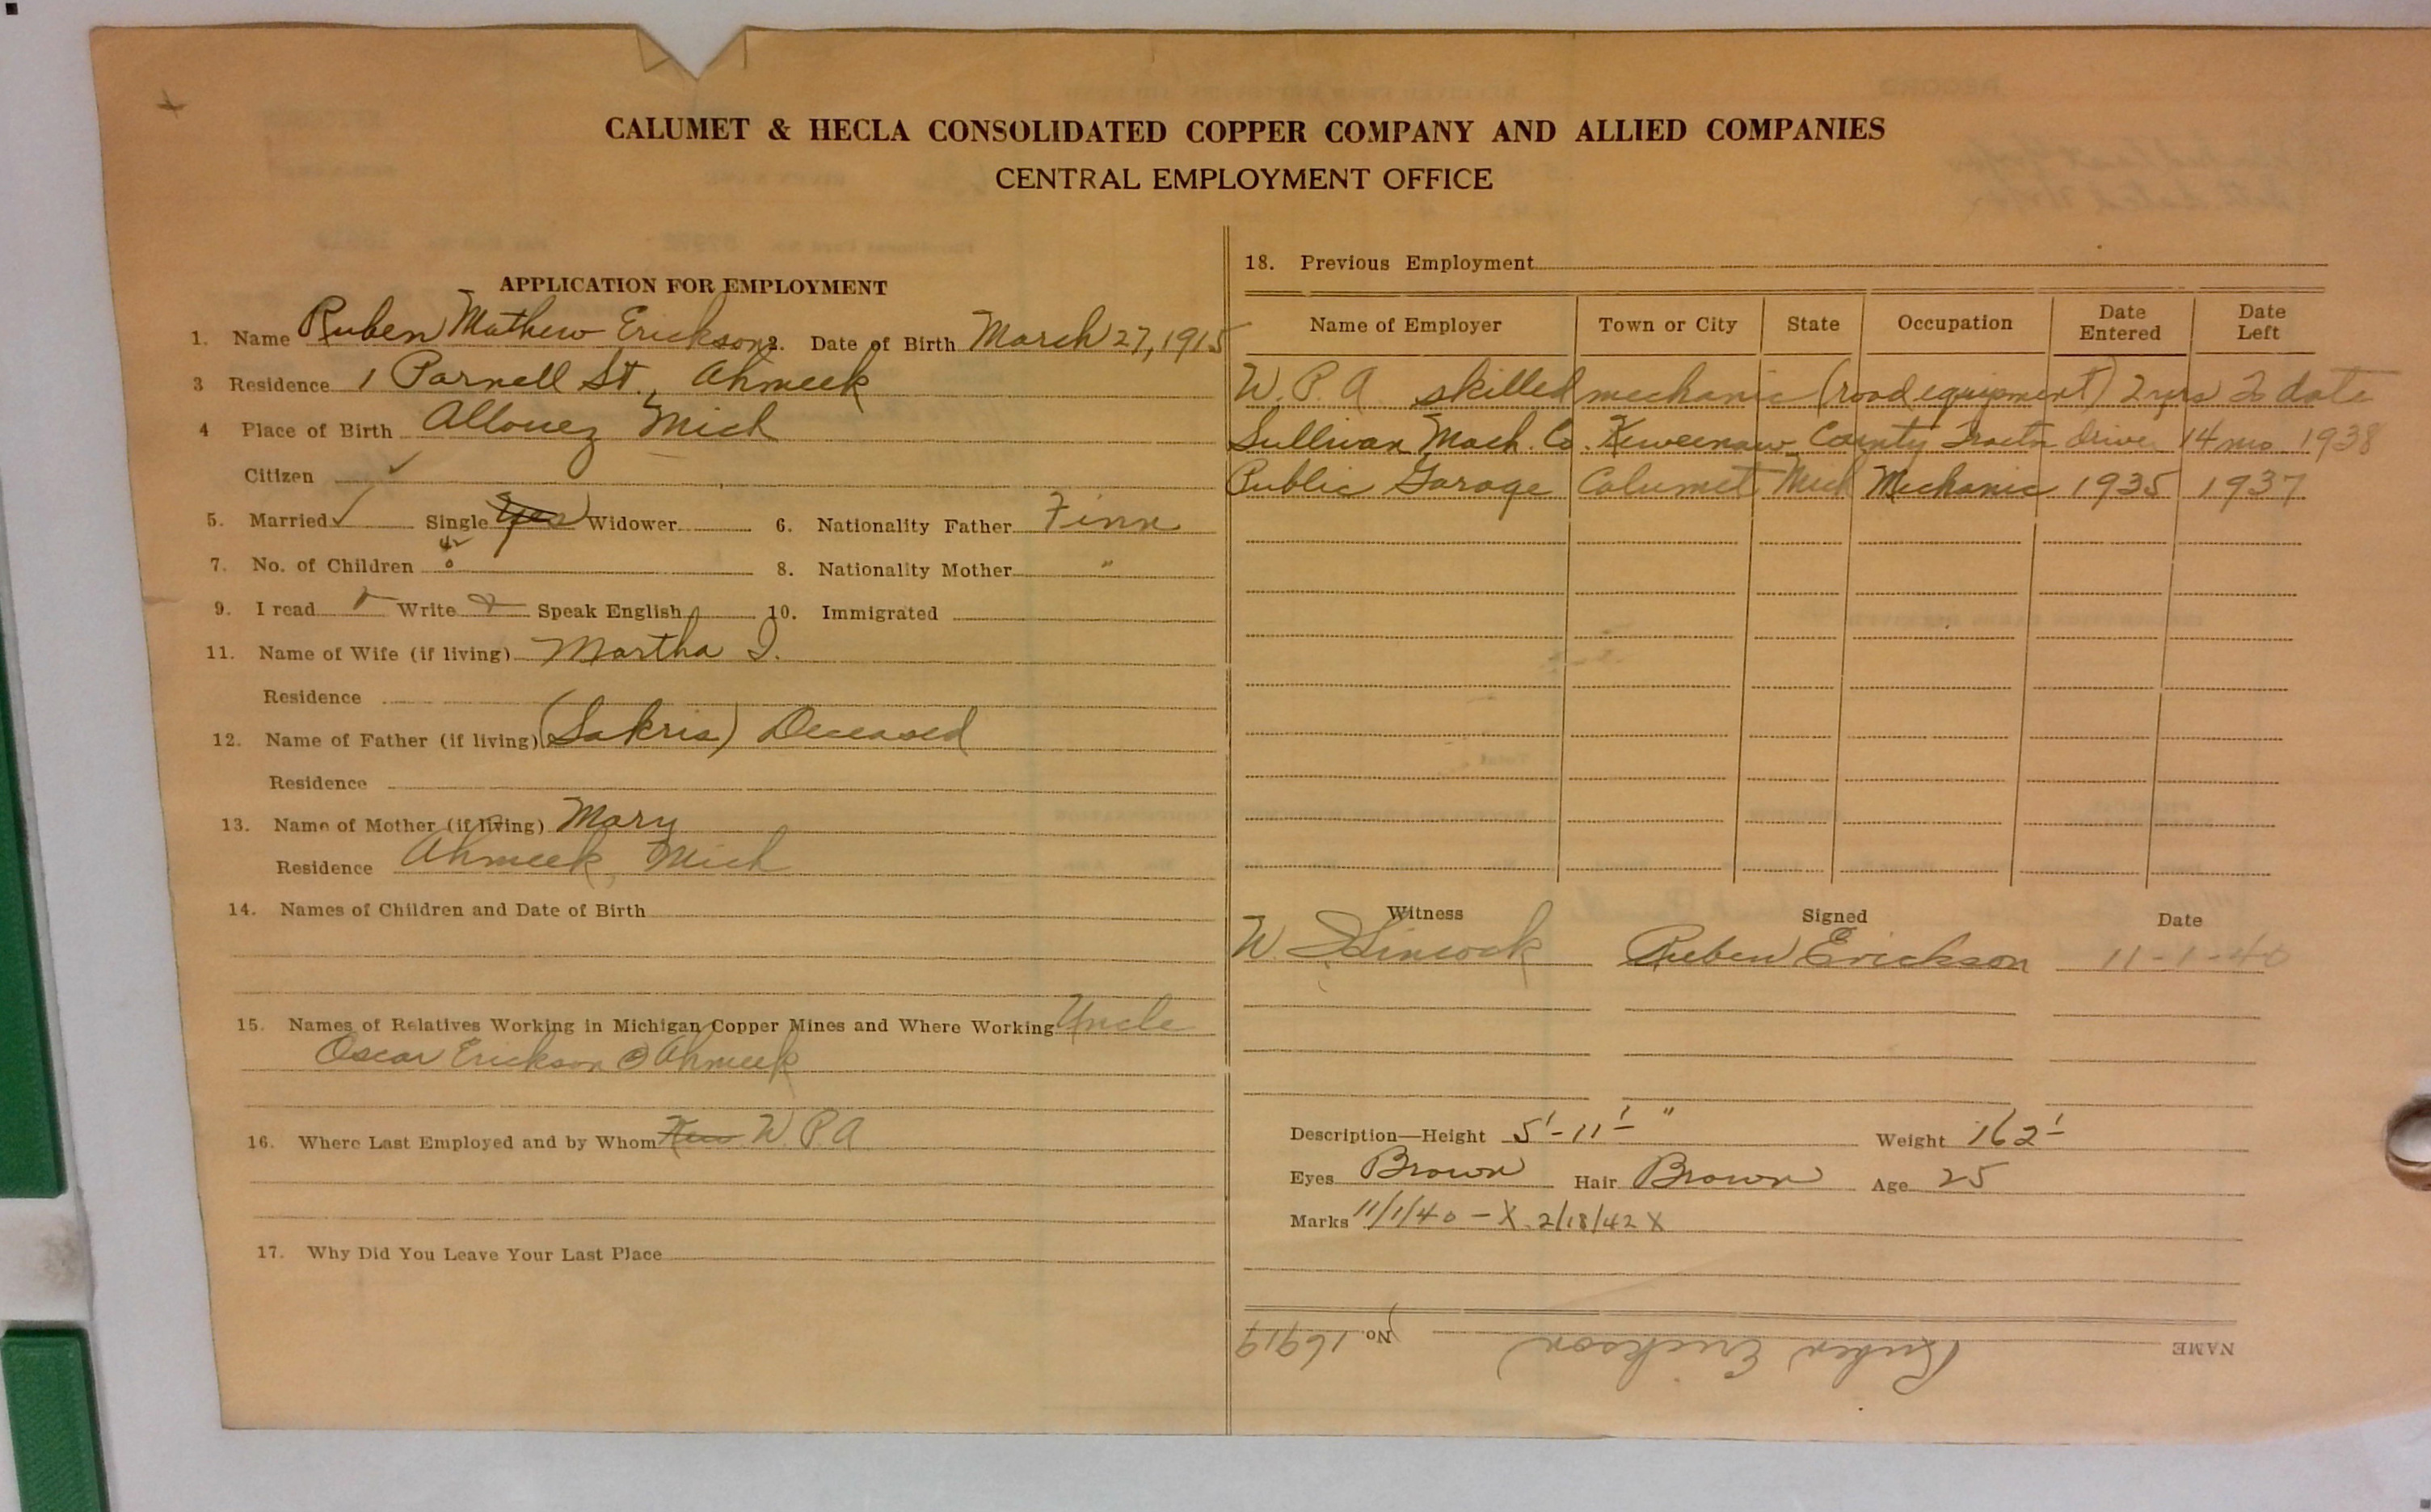 CALUMET & HECLA CONSOLIDATED COPPER COMPANY AND ALLIED COMPANIES
CENTRAL EMPLOYMENT OFFICE
APPLICATION FOR EMPLOYMENT
1. Name Ruben Mathew Erickson 2. Date of Birth March 27, 1915
3 Residence 1 Parnell St., Ahmeek
4 Place of Birth Allouez Mich
Citizen ✓
5. Married ✓ Single Yes Widower 6. Nationality Father Finn
7. No. of Children 0 8. Nationality Mother "
9. I read Write Speak English 10. Immigrated
11. Name of Wife (if living) Martha I.
Residence
12. Name of Father (if living) (Sakris) Deceased
Residence
13. Name of Mother (if living) Mary
Residence Ahmeek, Mich
14. Names of Children and Date of Birth
15. Names of Relatives Working in Michigan Copper Mines and Where Working Uncle
Oscar Erickson @ Ahmeek
16. Where Last Employed and by Whom W.P.A
17. Why Did You Leave Your Last Place
18. Previous Employment
Name of Employer Town or City State Occupation Date Entered Date Left
W.P.A. skilled mechanic (road equipment) 2 yrs to date
Sullivan Mach. Co. Keweenaw County Tractor driver 14 mo. 1938
Public Garage Calumet Mich Mechanic 1935 1937
Witness Signed Date
W. Ruben Erickson 11-1-40
Description—Height 5'-11" Weight 162
Eyes Brown Hair Brown Age 25
Marks 11/1/40 - X. 2/18/42 X
NAME Ruben Erickson No. 16919